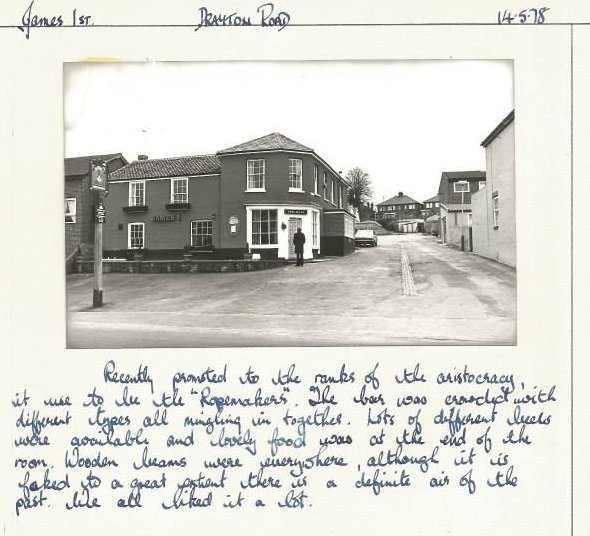 James 1st. DRAYTON ROAD 14.5.78
JAMES I
Recently promoted to the ranks of the aristocracy,
it use to be the "Ropemakers". The bar was crowded with
different types all mingling in together. Lots of different beers
were available and lovely food was at the end of the
room. Wooden beams were everywhere, although it is
faked to a great extient there is a definite air of the
past. We all liked it a lot.